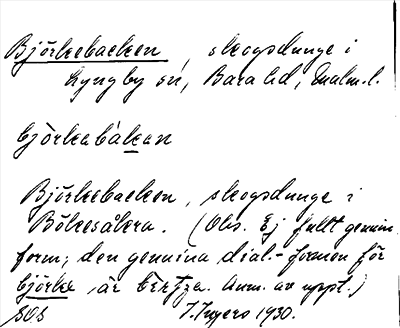 Björkebacken, skogsdunge i
Lyngby sn, Bara hd, Malm.l.
bjö̀rkabákan
Björkebacken, skogsdunge i
Bökesåkra. (Obs. Ej fullt genuin
form; den genuina dial.-formen för
björke är
Anm. av uppt.)
SOB I. Ingers 1930.